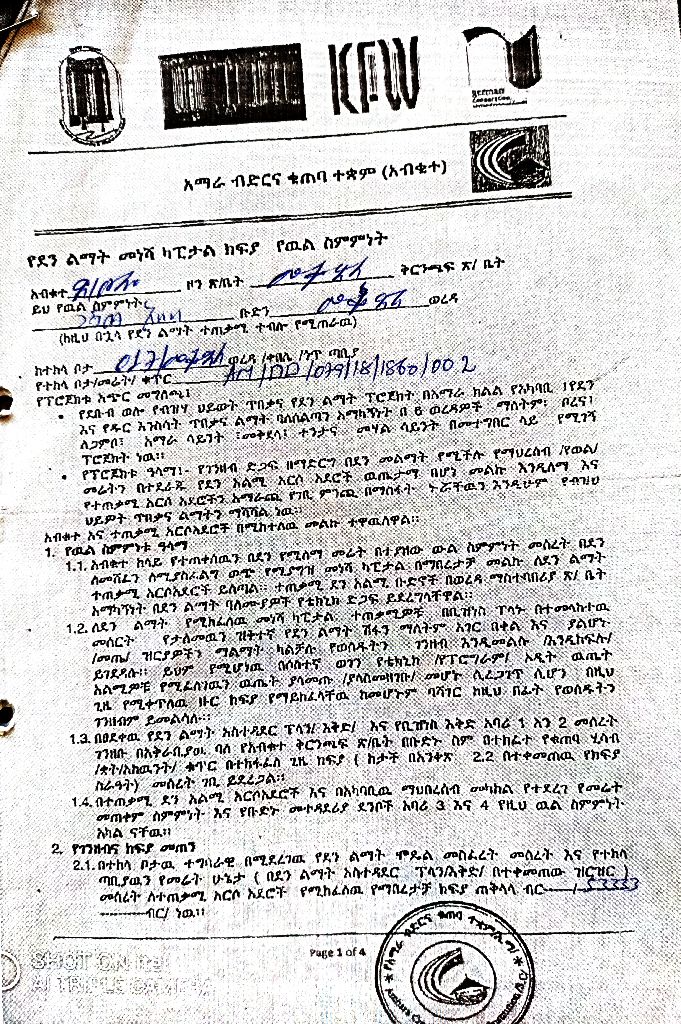 KFW
german
አማራ ብድርና ቁጠባ ተቋም (አብቁተ)
የደን ልማት መነሻ ካፒታል ክፍያ የዉል ስምምነት
አብቁተ ዞን ጽ/ቤት መቅደላ ቅርንጫፍ ጽ/ ቤት
ይህ የዉል ስምምነት ቡድን መቅደላ ወረዳ
(ከዚህ በኋላ የደን ልማት ተጠቃሚ ተብሎ የሚጠራዉ)
ከተከላ ቦታ ወረዳ /ቀበሌ /ንኡ ጣቢያ
የተከላ ቦታ/መሬት/ ቁጥር
የፕሮጀክቱ አጭር መግለጫ፤
• የደቡብ ወሎ የብዝሃ ህይወት ጥበቃና የደን ልማት ፕሮጀክት በአማራ ክልል የአካባቢ የደን
እና የዱር እንስሳት ጥበቃና ልማት ባለስልጣን አማካኝነት በ 6 ወረዳዎች ማለትም፡ ቦረና፤
ለጋምቦ፤ አማራ ሳይንት ፤መቅደላ፤ ተንታና መሃል ሳይንት በመተግበር ላይ የሚገኝ
ፕሮጀክት ነዉ፡፡
• የፕሮጀክቱ ዓላማ፤- የገንዘብ ድጋፍ በማድርግ በደን መልማት የሚችሉ የማህረሰብ /የወል/
መሬትን በተደራጁ የደን አልሚ አርሶ አደሮች ዉጤታማ በሆነ መልኩ እንዲለማ እና
የተጠቃሚ አርሶ አደሮችን አማራጫ የገቢ ምንጫ በማስፋት ኑሯቸዉን እንዲሁም የብዝሃ
ህይዎት ጥበቃና ልማትን ማሻሻል ነዉ፡፡
አብቁተ እና ተጠቃሚ አርሶአደሮች በሚከተለዉ መልኩ ተዋዉለዋል፡፡
1. የዉል ስምምነቱ ዓላማ
1.1. አብቁተ ከላይ የተጠቀሰዉን በደን የሚለማ መሬት በተያዘው ውል ስምምነት መሰረት በደን
ለመሸፈን ለሚያስፈልግ ወጭ የሚያግዝ መነሻ ካፒታል በማበረታቻ መልክ ለደን ልማት
ተጠቃሚ አርሶአደሮች ይሰጣል፡፡ ተጠቃሚ ደን አልሚ ቡድኖች በወረዳ ማስተባበሪያ ጽ/ ቤት
አማካኝነት በደን ልማት ባለሙያዎች የቴክኒክ ድጋፍ ይደረግላቸዋል፡፡
1.2. ለደን ልማት የሚከፈለዉ መነሻ ካፒታል ተጠቃሚዎቹ በቢዝነስ ፕላኑ በተመላከተዉ
መሰርት የታለመዉን ዝቅተኛ የደን ልማት ሽፋን ማለትም አገር በቀል እና ያልሆኑ
/መጤ/ ዝርያዎችን ማልማት ካልቻሉ የወሰዱትን ገንዘብ እንዲመልሱ /እንዲከፍሉ/
ይገደዳሉ፡፡ ይህም የሚሆነዉ በሶስተኛ ወገን የቴክኒክ /የፕሮግራም/ ኦዲት ዉጤት
አልሚዎቹ የሚፈለገዉን ዉጤት ያላመጡ /ያላስመዘገቡ/ መሆኑ ሲረጋገጥ ሲሆን በዚህ
ጊዜ የሚቀጥለዉ ዙር ክፍያ የማይከፈላቸዉ ከመሆኑም ባሻገር ከዚህ በፊት የወሰዱትን
ገንዘብም ይመልሳሉ፡፡
1.3. በፀደቀዉ የደን ልማት አስተዳደር ፕላን/ እቅድ/ እና የቢዝነስ እቅድ አባሪ 1 እን 2 መሰረት
ገንዘቡ በአቅራቢያዉ ባለ የአብቁተ ቅርንጫፍ ጽ/ቤት በቡድኑ ስም በተከፈተ የቁጠባ ሂሳብ
/ቋት/አከዉንት/ ቁጥር በተከፋፈለ ጊዜ ክፍያ ( ከታች በአንቀጽ 2.2 በተቀመጠዉ የክፍያ
ስራዓት) መሰረት ገቢ ይደረጋል፡፡
1.4. በተጠቃሚ ደን አልሚ አርሶአደሮች እና በአካባቢዉ ማህበረሰብ መካከል የተደረገ የመሬት
መጠቀም ስምምነት እና የቡድኑ መተዳደሪያ ደንቦች አባሪ 3 እና 4 የዚህ ዉል ስምምነት
አካል ናቸዉ፡፡
2. የገንዘብና ክፍያ መጠን
2.1. በተከላ ቦታዉ ተግባራዊ በሚደረገዉ የደን ልማት ሞዴል መስፈረት መሰረት እና የተከላ
ጣቢያዉን የመሬት ሁኔታ ( በደን ልማት አስተዳደር ፕላን/እቅድ/ በተቀመጠው ዝርዝር )
መሰረት ለተጠቃሚ አርሶ አደሮች የሚከፈለዉ የማበረታቻ ክፍያ ጠቅላላ ብር-----/-53333
------------ብር/ ነዉ፡፡
Page 1 of 4
SHOT ON itel
AI TRIPLE CAMERA